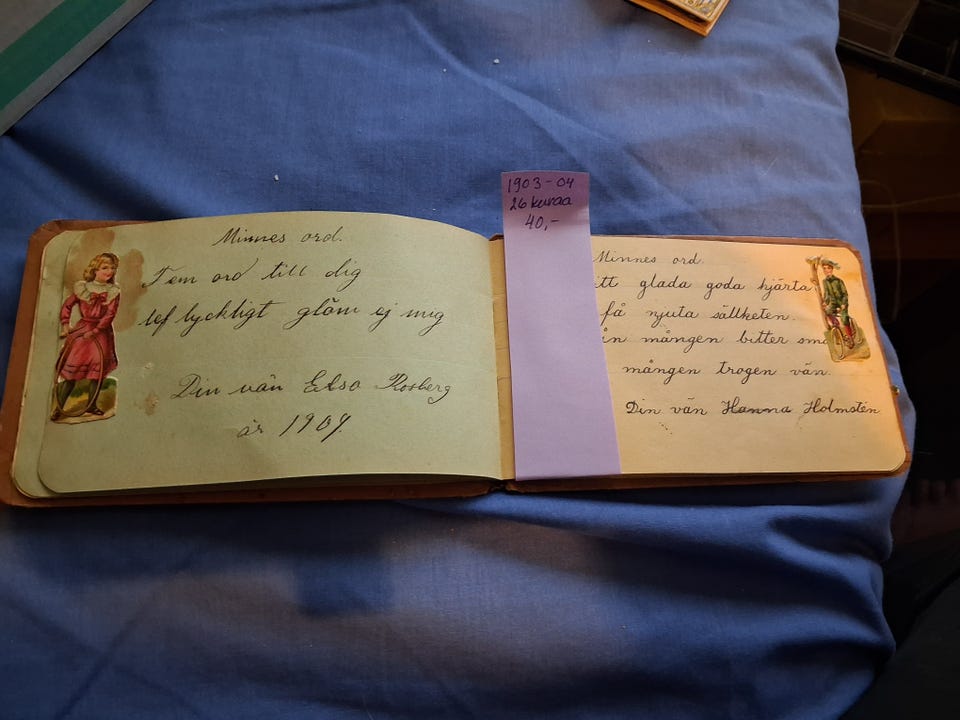 Minnes ord.
Fem ord till dig
lef lyckligt glöm ej mig
Din vän Elsa Rosberg
år 1904
1903-04
26 kuvaa
40,-
Minnes ord.
glada goda hjärta
få njuta sällheten.
mången bitter
mången trogen vän.
Din vän Hanna Holmstén